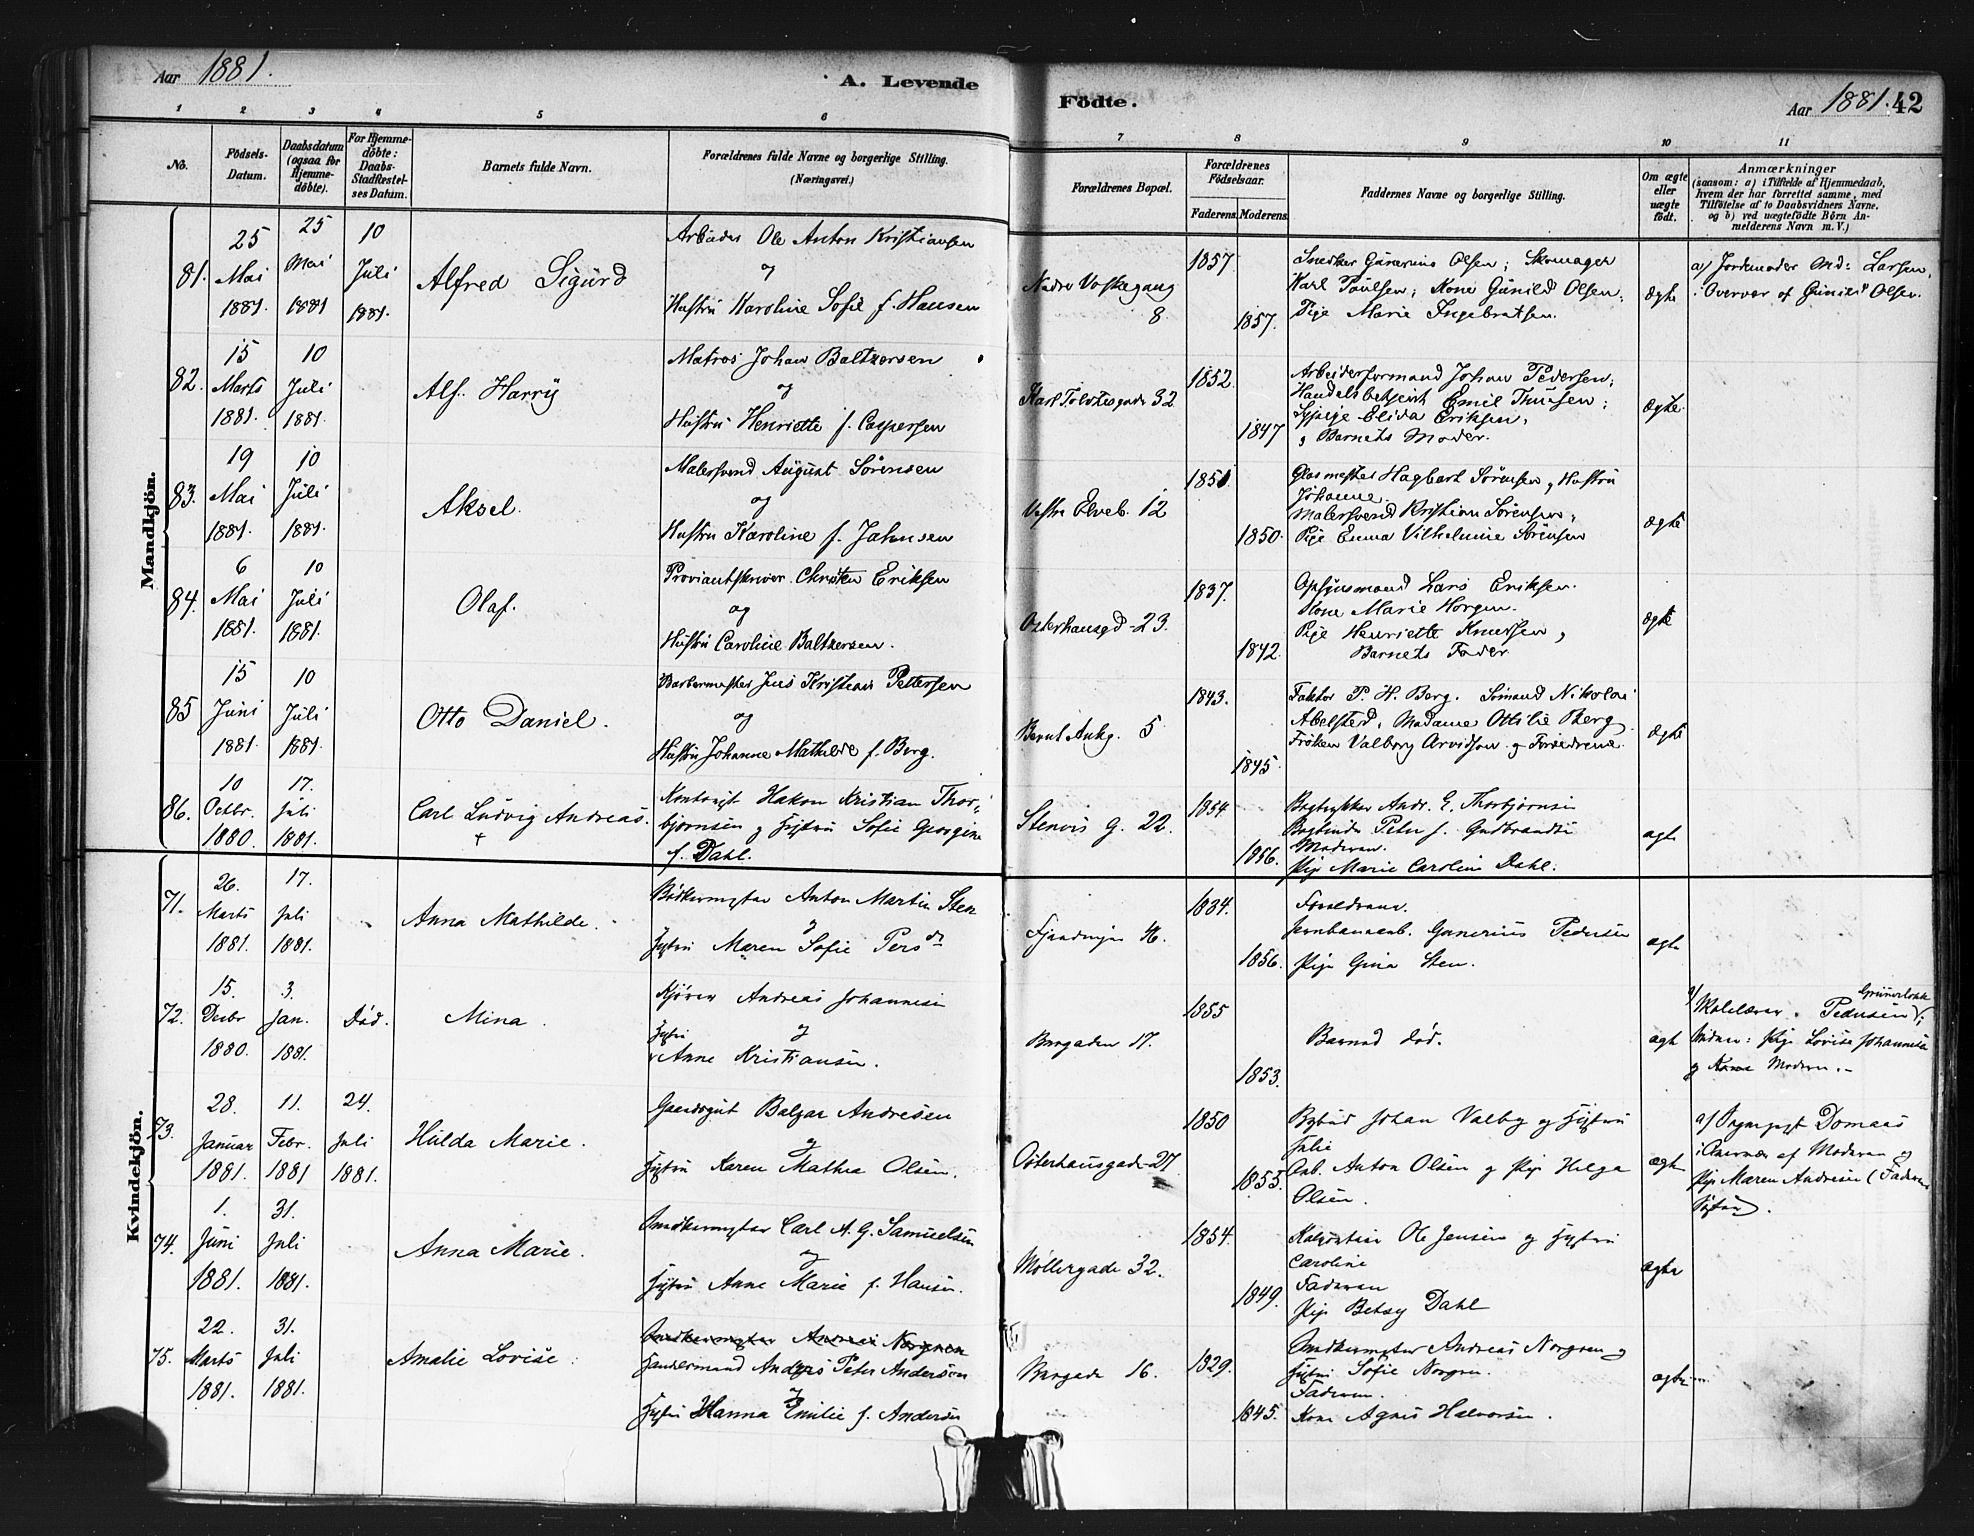 Aar 1881.
A. Levende
Födte.
Aar 1881. 42
1 2 3 4 5 6 7 8 9 10 11
No.
Födsels-
Datum.
Daabsdatum
(ogsaa for
Hjemme-
döbte).
For Hjemme-
döbte:
Daabs-
Stadfæstel-
ses Datum.
Barnets fulde Navn.
Forældrenes fulde Navne og borgerlige Stilling.
(Næringsvei.)
Forældrenes Bopæl.
Forældrenes
Födselsaar.
Faderens. Moderens.
Faddernes Navne og borgerlige Stilling.
Om ægte
eller
uægte
födt.
Anmærkninger
(saasom: a) i Tilfælde af Hjemmedaab,
hvem der har forrettet samme, med
Tilföielse af to Daabsvidners Navne,
og b) ved uægtefödte Börn An-
melderens Navn m. V.)
Mandkjön.
81. 25 Mai 1881. 25 Mai 1881 10 Juli 1881.
Alfred Sigurd
Arbeider Ole Anton Kristiansen
og
Hustru Karoline Sofie f. Hansen
Nedre Voskegang
8.
1857.
1857.
Snedker Gunerius Olsen; Skomager
Karl Paulsen; Kone Gunild Olsen;
Pige Marie Ingebretsen.
ægte
a) Jordmoder Md: Larsen,
i Overvær af Gunild Olsen.
82. 15 Marts 1881. 10 Juli 1881.
Alf Harry
Matros Johan Baltzersen
og
Hustru Henriette f. Caspersen
32
1852.
1847
Arbeidsformand Johan Pedersen;
Handelsbetjent Emil Thuesen;
Sypige Elida Eriksen,
og Barnets Moder.
ægte.
83. 19 Mai 1881. 10 Juli 1881.
Aksel.
Malersvend August Sörensen
og
Hustru Karoline f. Jahnsen
Vestre Elveb. 12
1851
1850.
Glasmester Hagbart Sørensen og Hustru
Johanne.
Malersvend Kristian Sørensen,
Pige Emma Vilhelmine Sørensen
ægte
84. 6 Mai 1881. 10 Juli 1881.
Olaf.
Proviantskriver Christen Eriksen
og
Hustru Caroline Baltzersen.
Osterhausgd 23.
1837.
1842.
Opsynsmand Lars Eriksen.
Kone Marie Horgen.
Pige Henriette Knudsen,
Barnets Fader.
ægte
85 15 Juni 1881. 10 Juli 1881.
Otto Daniel.
Barbermester Jens Kristian Pettersen
og
Hustru Johanne Mathilde f. Berg.
Bernt Ankg. 5
1843.
1845.
Faktor P. H. Berg. Sömand Nikolai
Abelsted, Madame Ottilie Berg
Frøken Valborg Arvidson og Forældrene.
ægte
86. 10 Octbr. 1880. 17. Juli 1881.
Carl Ludvig Andreas.
+
Kontorist Hakon Kristian Thor-
bjørnsen og Hustru Sofie Georgine
f. Dahl.
Stenvs G. 22.
1854
1856.
Bogtrykker Andr. E. Thorbjørnsen
Bogbinder Peter J. Gudbrandsen
Moderen.
Pige Marie Caroline Dahl.
ægte
Kvindekjön.
71. 26. Marts 1881. 17. Juli 1881.
Anna Mathilde.
Bødkermester Anton Martin Sten
og
Hustru Maren Sofie Persdr
16.
1834.
1856.
Forældrene.
Jernbanearb. Gunerius Pedersen
Pige Gina Sten.
ægte
72. 15. Decbr 1880. 3. Jan. 1881. Død.
Mina.
Kjører Andreas Johannesen
Hustru og
Anne Kristiansen.
Borgaden 17.
1855
1853.
Barnet død.
ægte
a/ Skolelærer Pedersen, Grünerløkk;
Vidner: Pige Lovise Johannesen
og Moderen.
73. 28. Januar 1881. 11. Febr. 1881 24. Juli 1881.
Hulda Marie.
Gaardsgut Balzar Andresen
og
Hustru Karen Mathea Olsen.
Osterhausgade 27
1850
1855.
Bybud Johan Valby og Hustru
Julie
Arb. Anton Olsen og Pige Helga
Olsen.
ægte
a/ Domaas
i Overvær af Moderen og
Pige Maren Andresen (Faderens
Søster).
74. 1. Juni 1881. 31. Juli 1881.
Anna Marie.
Snedkermester Carl A. G. Samuelsen
og
Hustru Anne Marie f. Hansen.
Møllergade 32.
1854.
1849.
Ole Jensen og Hustru
Caroline
Faderen
Pige Betsy Dahl
ægte
75. 22. Marts 1881. 31. Juli 1881.
Amalie Lovise.
Snedkermester Andreas Norgren
Handelsmand Anders Peter Anderson
og
Hustru Hanna Emilie f. Andersen
Borgade 16.
1829.
1845.
Snedkermester Andreas Norgren og
Hustru Sofie Norgren.
Faderen.
Kone Agnes Halvorsen.
ægte